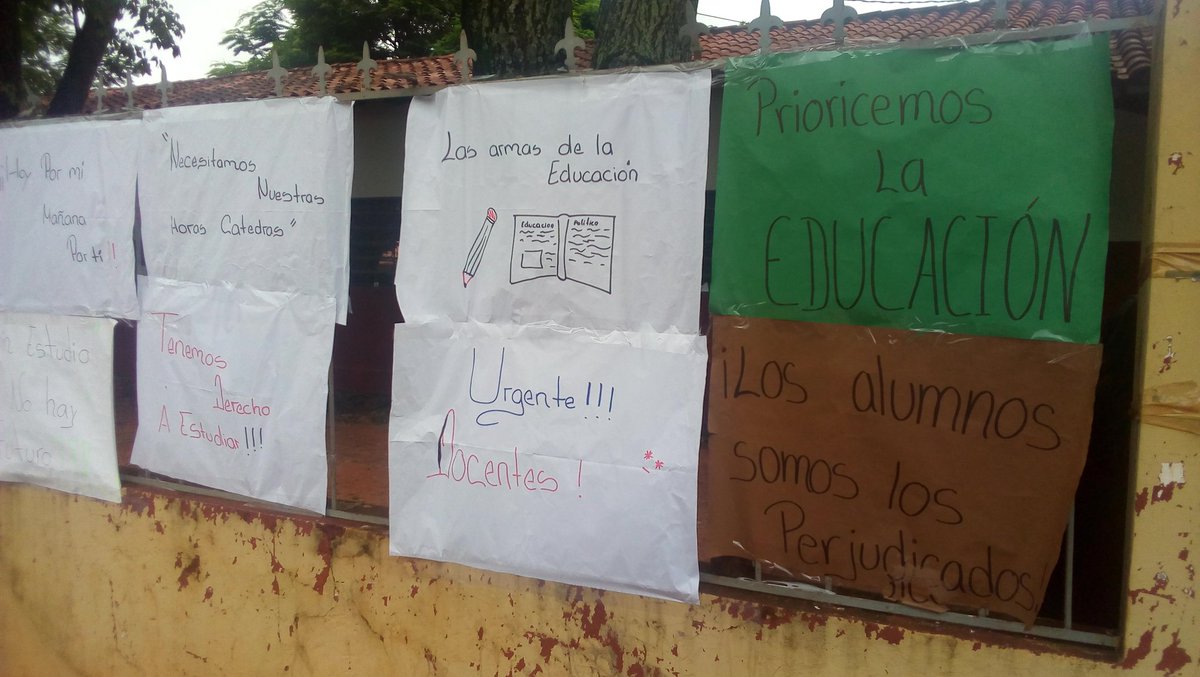 ¡¡Hoy Por mí
Mañana
Por ti!!
Estudio
No hay
"Necesitamos
Nuestras
Horas Catedras"
Tenemos
Derecho
A Estudiar!!!
Las armas de la
Educación
Educacion
Politico
Urgente!!!
Docentes!
Prioricemos
La
EDUCACIÓN
¡Los alumnos
somos los
Perjudicados!